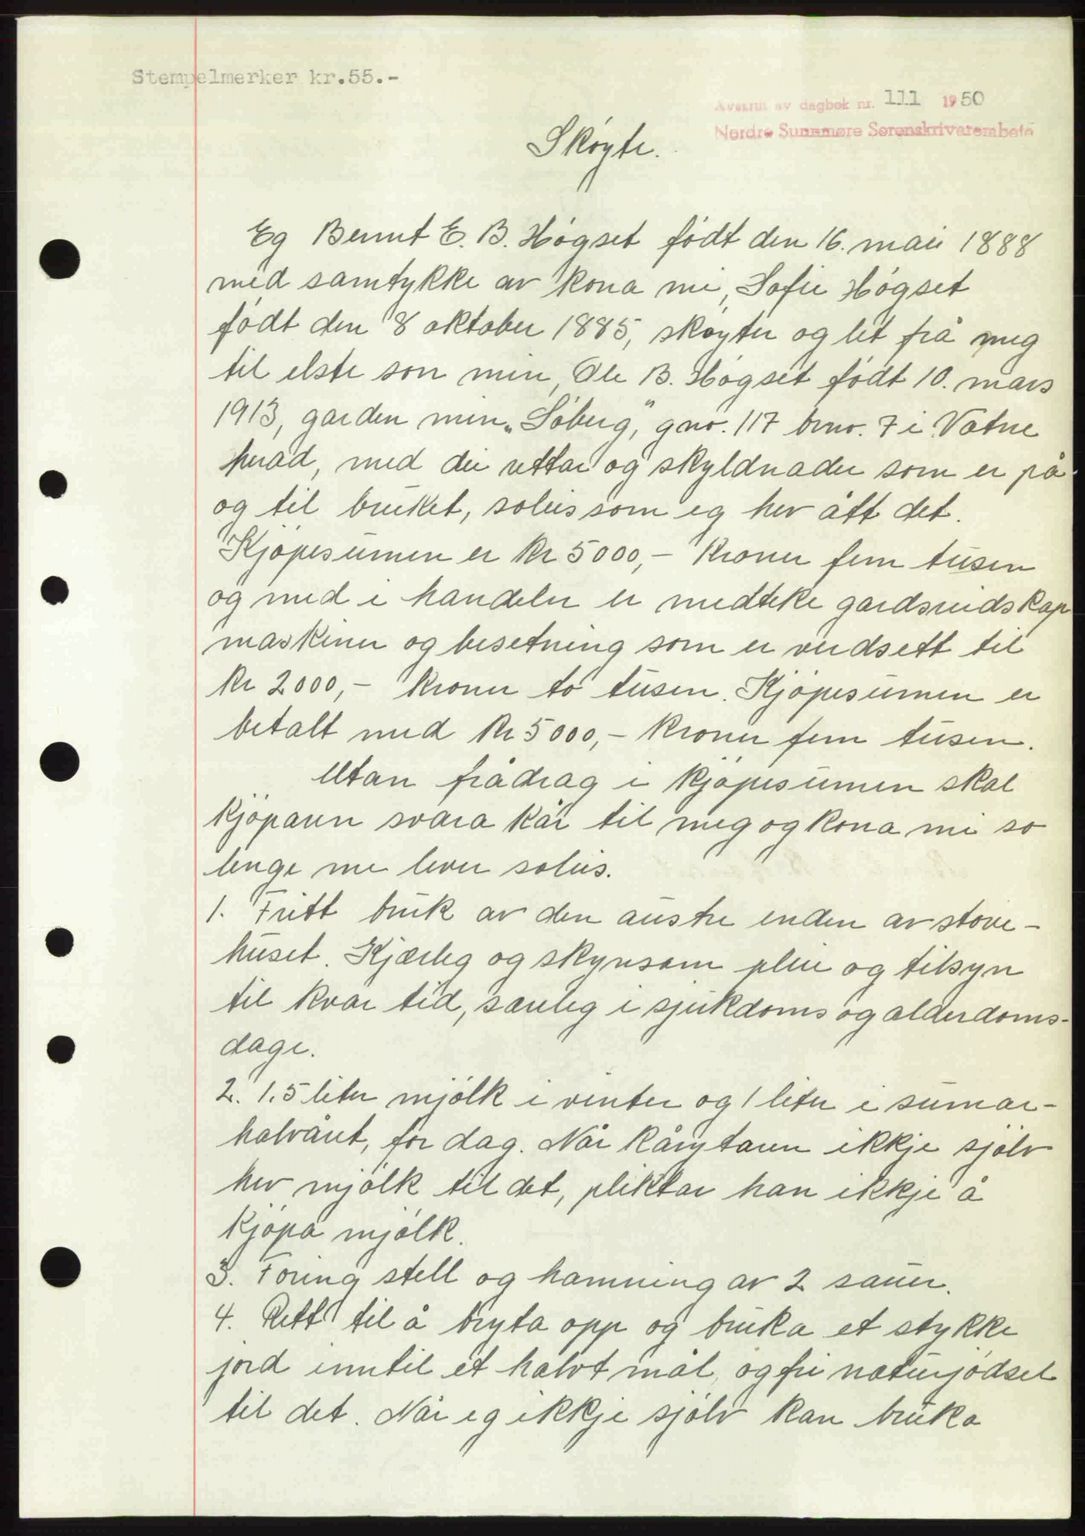 Stempelmerker kr.55.-
Avskrift av dagbok nr. 111 1950
Nordre Sunnmøre Sorenskrivarembete
Skøyte.
Eg Bernt E. B. Høgset født den 16. mai 1888
med samtykke av kona mi, Sofie Høgset
født den 8 oktober 1885, skøyter og let frå meg
til elste son min, Ole B. Høgset født 10. mars
1913, garden min „Søberg," gnr. 117 bnr. 7 i Vatne
herad, med dei rettar og skyldnader som er på
og til bruket, soleis som eg hev ått det.
Kjøpesumen er kr 5000,- kroner fem tusen
og med i handelen er medteke gardsreidskap
maskiner og besetning som er verdsett til
kr 2000,- kroner to tusen. Kjøpesumen er
betalt med kr 5000,- kroner fem tusen.
Utan frådrag i kjøpesumen skal
kjøparen svara kår til meg og kona mi so
lenge me lever soleis.
1. Fritt bruk av den austre enden av stove-
huset. Kjærleg og skynsom pleie og tilsyn
til kvar tid, særleg i sjukdoms og alderdoms-
dage.
2. 1.5 liter mjølk i vinter og 1 liter i sumar-
halvåret, for dag. Når kårytaren ikkje sjølv
hev mjølk til det, pliktar han ikkje å
kjøpa mjølk.
3. Foring stell og hamning av 2 sauer.
4. Rett til å bryta opp og bruka et stykke
jord inntil et halvt mål, og fri naturgjødsel
til det. Når eg ikkje sjølv kan bruka